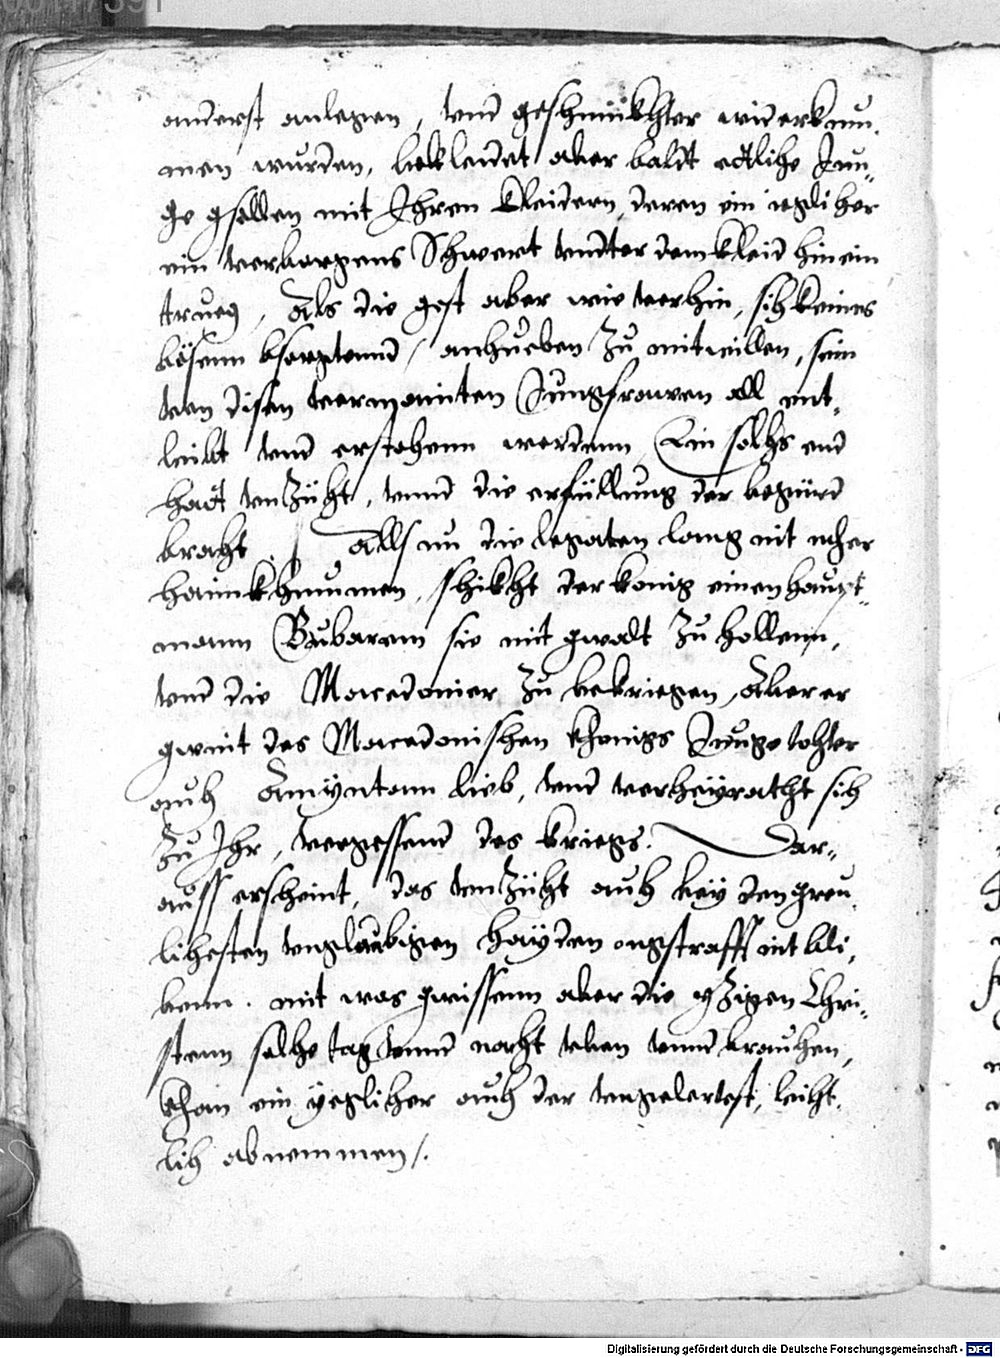 anderst anlegen, vnd geschmükhter widerkum,
men wurden, bekleidet aber baldt etliche Jun,
ge gsellen mit Jhren Kleidern, deren ein ieglicher
ein verborgens Schwert vndter dem kleid hinein
trueg, Als die gest aber wie vorhin, sich keines
bösenn bsorgtennd, anhueben zu mitwillen, sein
von disen vermainten Jungfrawen all ent,
leibt vnd erstochenn wordenn, Ein solchs end
hat vnzücht, vnnd die erfüllung der begürd
bracht. Alls nu die legaten lang nit wher
haimkhummen, schikht der konig einen haupt,
mann Bubarem sie mit gwalt zu hollenn,
vnd die Macedonier zu bekriegen, Aber er
gwint des Macedonischen Khonigs Junge tochter
auch Amyntam lieb, vnd verheyratht sich
zu Jhr, vergessend des kriegs. Dar,,
auss erscheint, das vnzücht auch bey den greu,
lichesten vnglaubigen hayden ongstrafft nit bli,
benn. mit was gwissenn aber die yzigen Chri,
stenn solche tag vnnd nacht veben vnnd brauchen,
khan ein yeglicher auch der vngelertest, leicht,
lich abnemmen/.
Digitalisierung gefördert durch die Deutsche Forschungsgemeinschaft - DFG